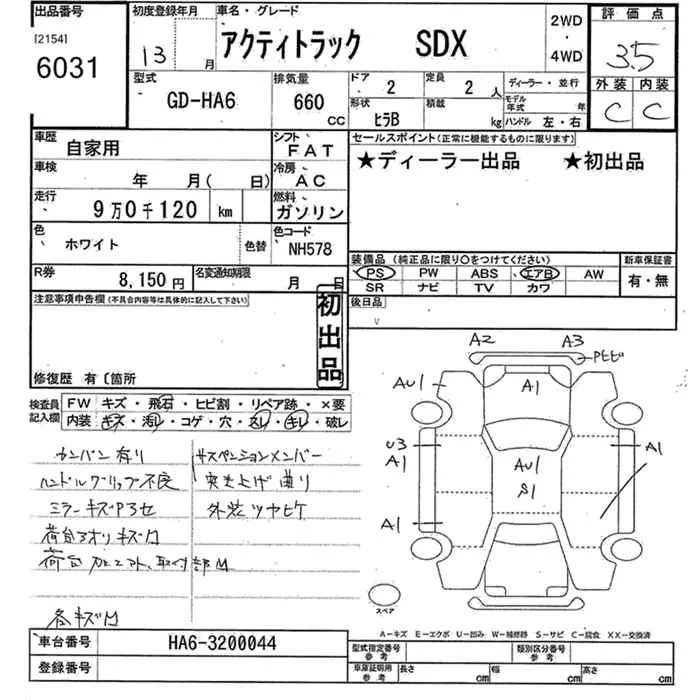 出品番号 初度登録年月 車名・グレード 2WD・4WD 評価点
[2154]
6031
13 月 アクティトラック SDX
3.5
型式 排気量 ドア 定員 ディーラー・並行 外装 内装
GD-HA6 660 CC 2 2 人 モデル年式 年
形状 積載
ヒラB kg ハンドル 左・右
C C
車歴 自家用 シフト FAT セールスポイント(正常に機能するものに限ります)
★ディーラー出品 ★初出品
車検 年 月( 日) 冷房 AC
走行 9万0千120 km 燃料 ガソリン
色 ホワイト 色替 色コード NH578
装備品 (純正品に限り○をつけてください) 新車保証書
PS PW ABS エアB AW 有・無
SR ナビ TV カワ
R券 8,150円 名変通知期限 月 日
後日品
注意事項申告欄(不具合内容等は具体的に記入して下さい)
初出品
修復歴 有〔箇所
検査員記入欄 FW キズ・飛石・ヒビ割・リペア跡・×要
内装・キズ・汚レ・コゲ・穴・スレ・キレ・破レ
カンバン有り サスペンションメンバー
ハンドルグリップ不良 突き上げ曲り
ミラーキズP3セ 外装ツヤヒケ
荷台アオリキズ凹
荷台
各キズ凹
A2 A3
Pヒビ
AU1 A1
U3 A1
A1 AU1
S1
A1
スペア
車台番号 HA6-3200044
登録番号
A-キズ E-エクボ U-凹み W-補修跡 S-サビ C-腐食 XX-交換済
型式指定番号 参考 類別区分番号 参考
車庫証明用 参考 長さ cm 幅 cm 高さ cm